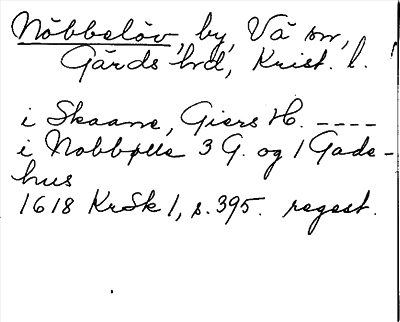 Nöbbelöv, by, Vä sn,
Gärds hrd, Krist. l.
i Skaane, Giers H. ----
i Nobbølle 3 G. og 1 Gade-
hus
1618 KrSk 1, s. 395. regest.